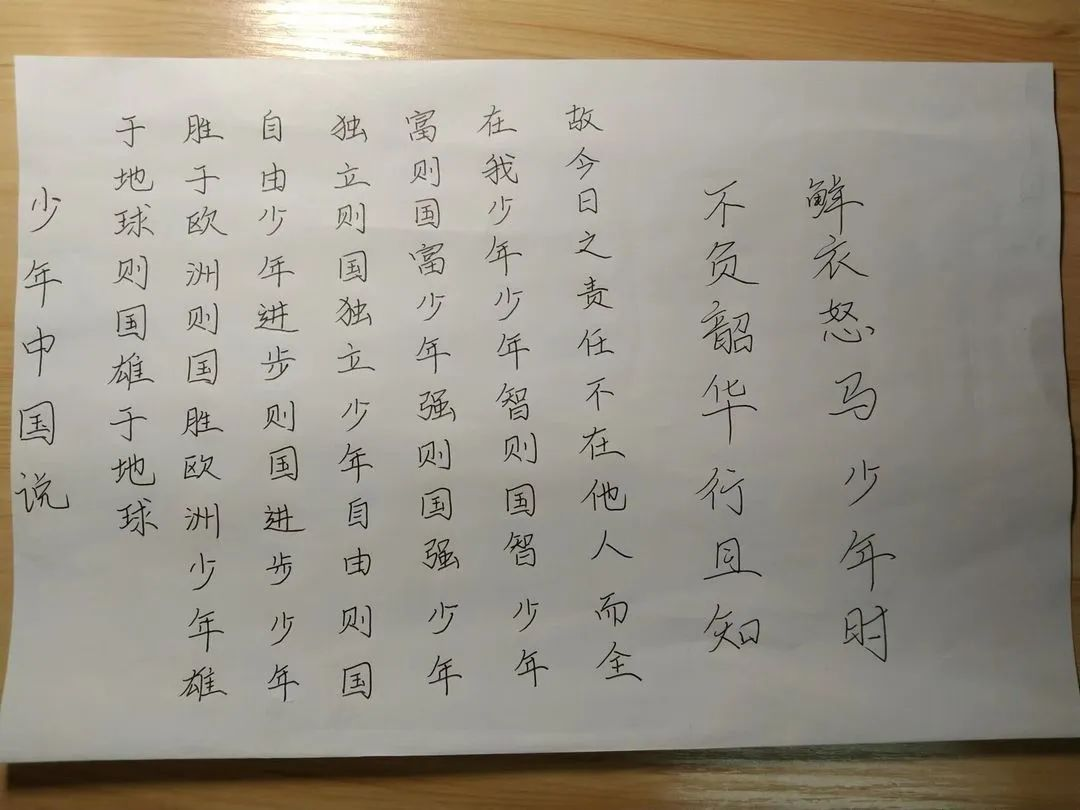 鲜衣怒马少年时
不负韶华行且知
故今日之责任不在他人而全
在我少年少年智则国智少年
富则国富少年强则国强少年
独立则国独立少年自由则国
自由少年进步则国进步少年
胜于欧洲则国胜欧洲少年雄
于地球则国雄于地球
少年中国说